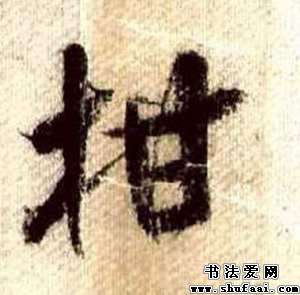 柑
书法爱网
www.shufaai.com